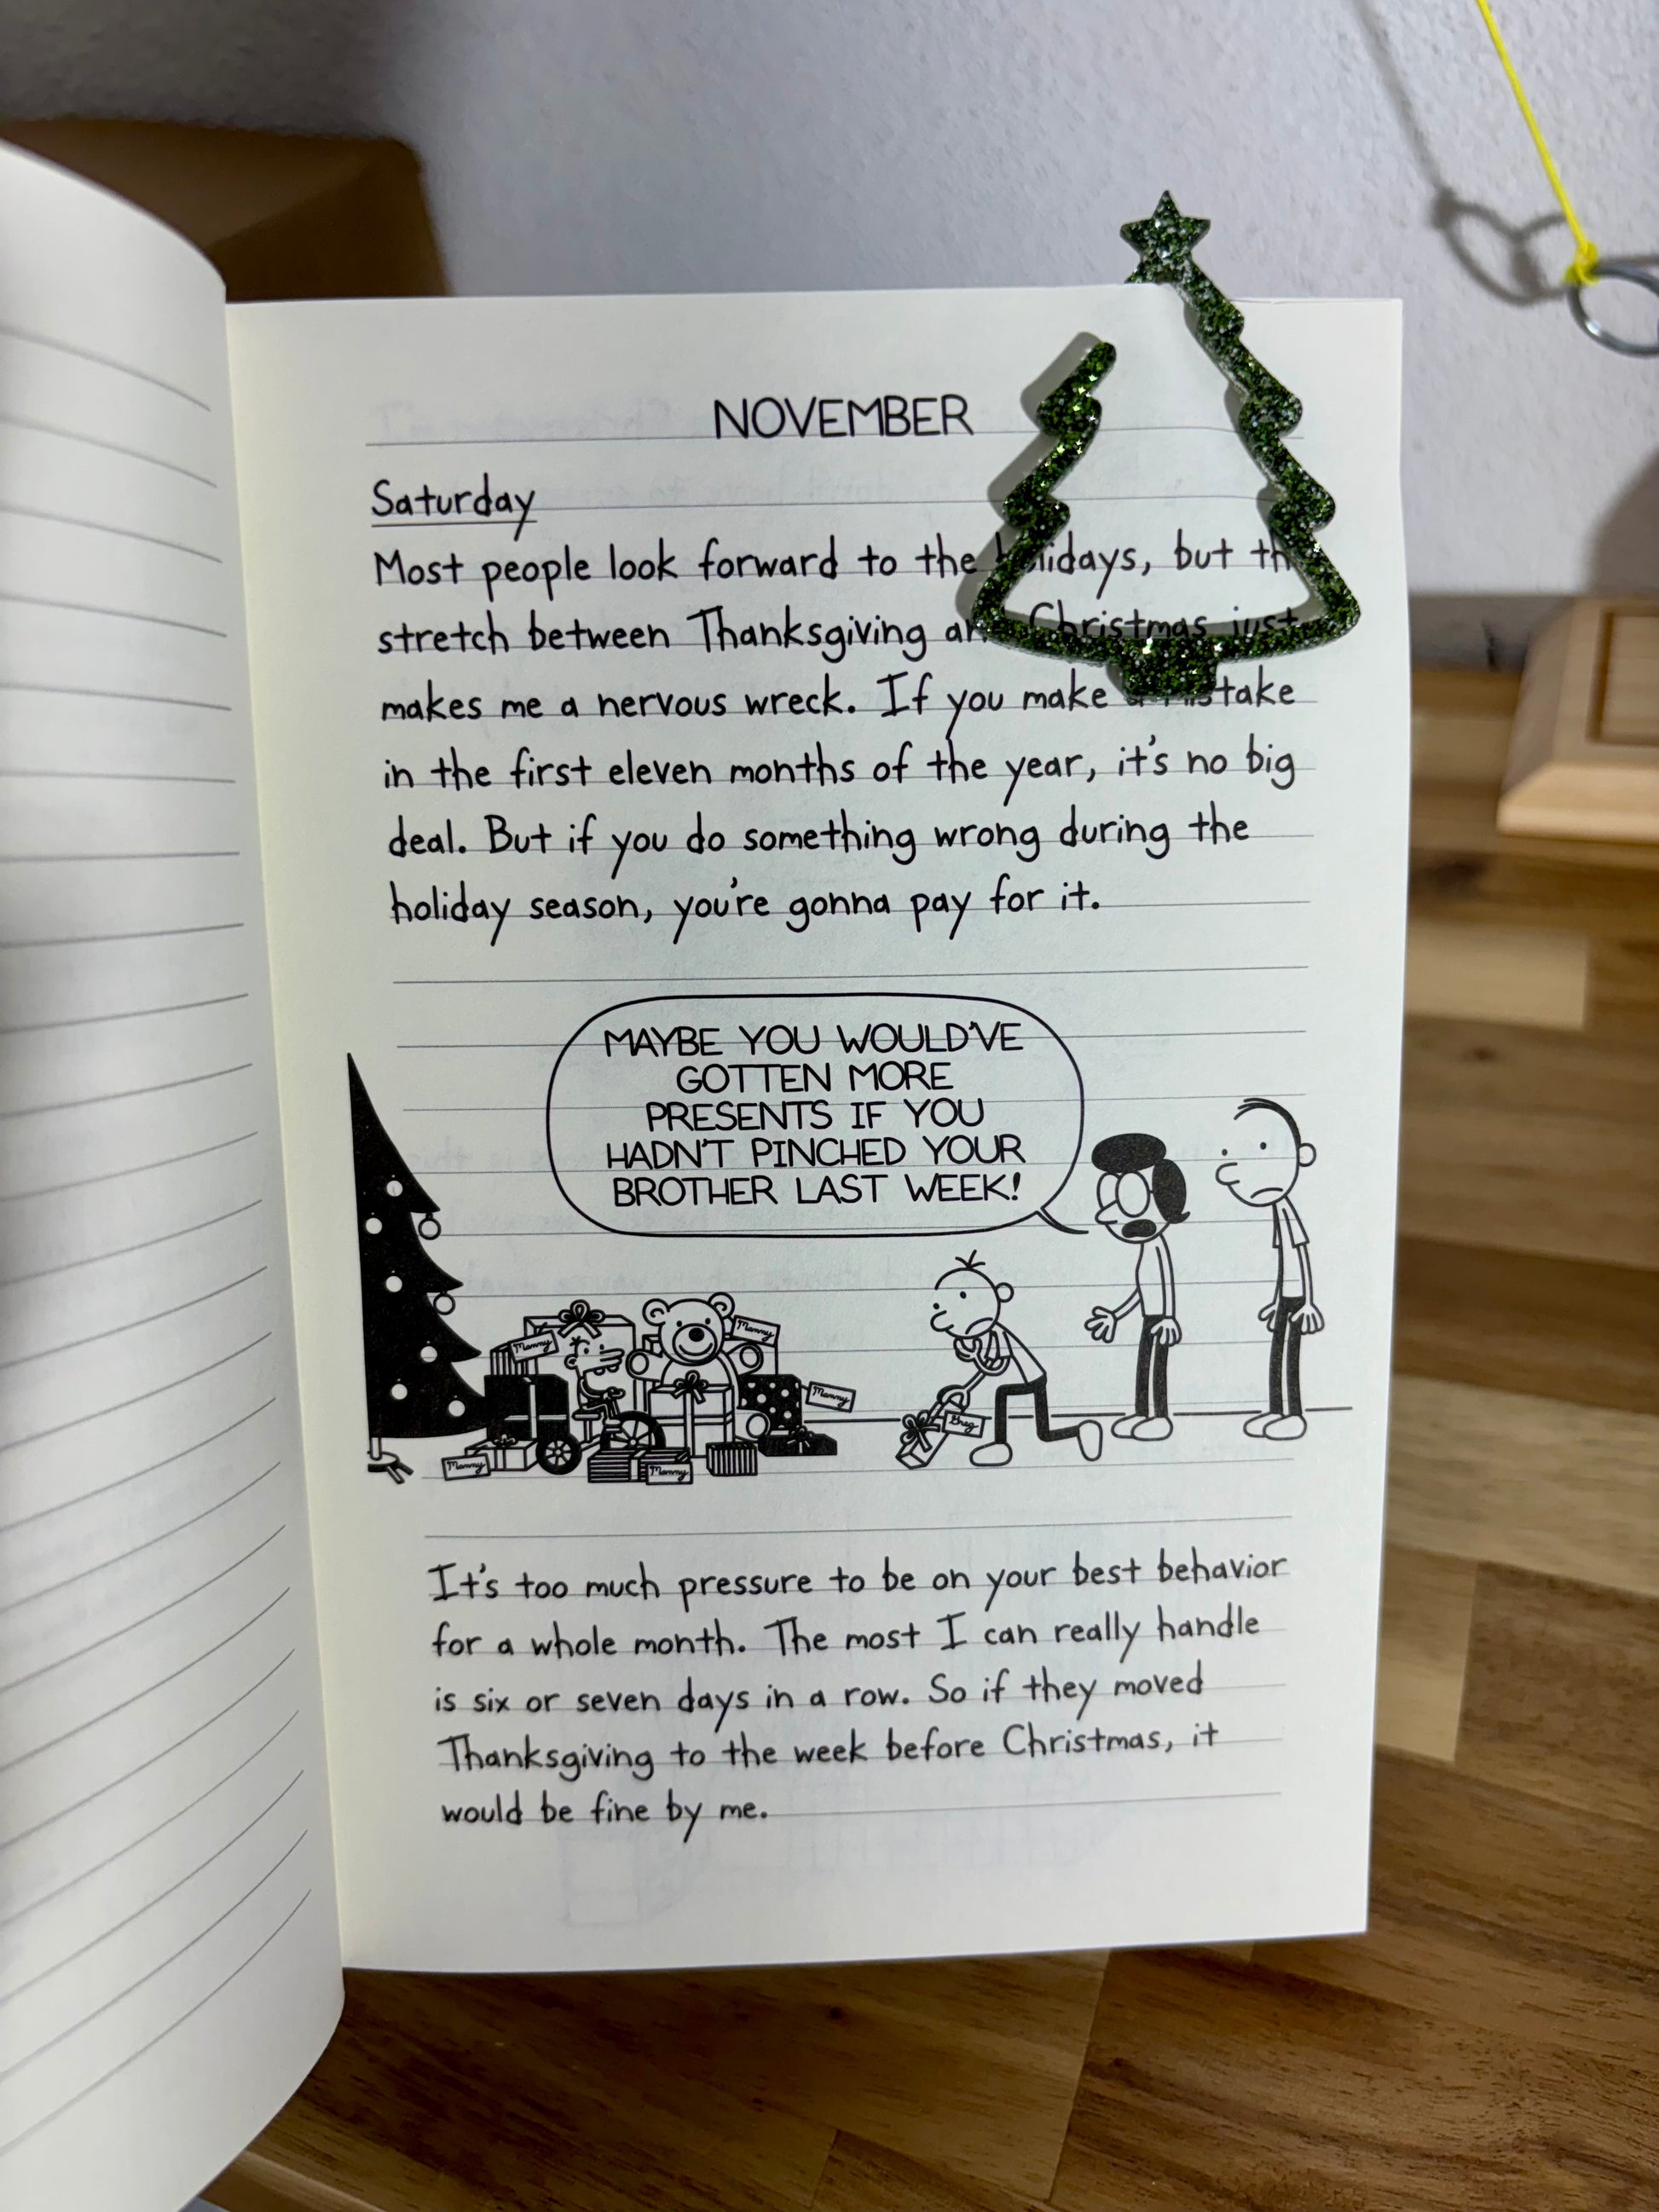 NOVEMBER
Saturday
Most people look forward to the holidays, but th
stretch between Thanksgiving and Christmas just
makes me a nervous wreck. If you make a mistake
in the first eleven months of the year, it's no big
deal. But if you do something wrong during the
holiday season, you're gonna pay for it.
MAYBE YOU WOULD'VE
GOTTEN MORE
PRESENTS IF YOU
HADN'T PINCHED YOUR
BROTHER LAST WEEK!
Manny
Manny
Manny
Greg
Manny
Manny
It's too much pressure to be on your best behavior
for a whole month. The most I can really handle
is six or seven days in a row. So if they moved
Thanksgiving to the week before Christmas, it
would be fine by me.